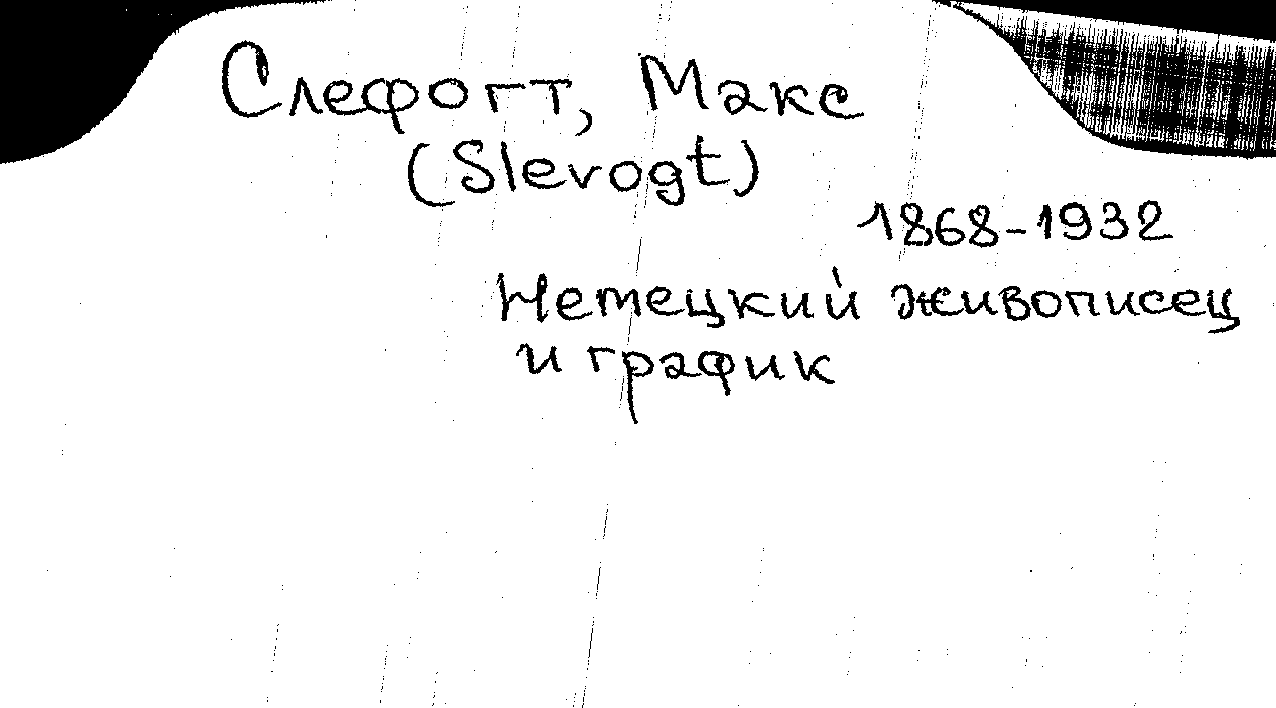 Слефогт, Макс
(Slevogt)
1868-1932
Немецкий живописец
и график